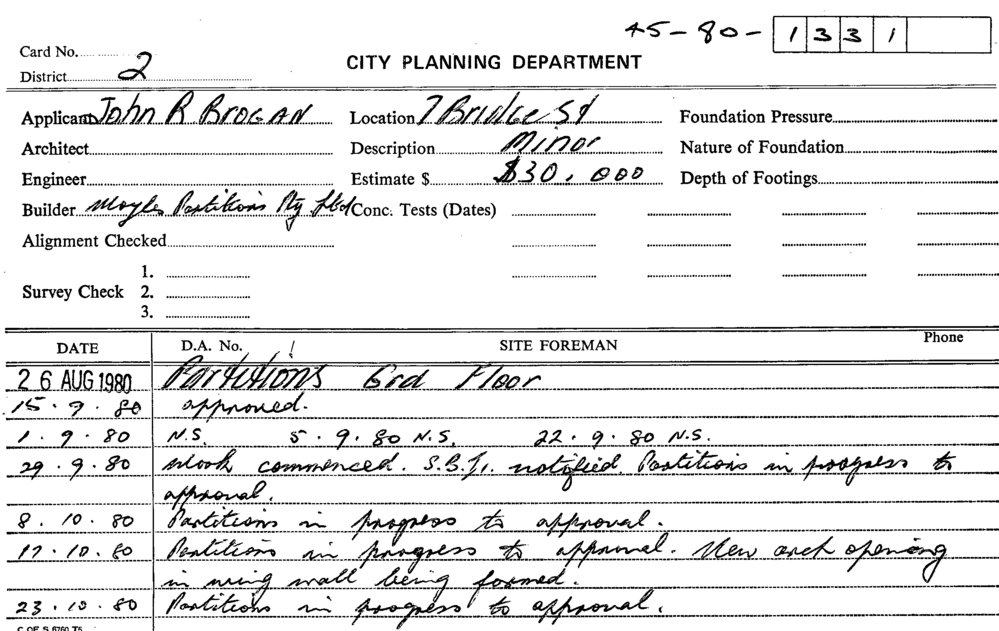 45-80-1331
Card No.
District 2
CITY PLANNING DEPARTMENT
Applicant John R Brogan Location 7 Bridge St Foundation Pressure
Architect Description Minor Nature of Foundation
Engineer Estimate $ $30,000 Depth of Footings
Builder Moyle Partitions Pty Ltd Conc. Tests (Dates)
Alignment Checked
1.
Survey Check 2.
3.
DATE D.A. No. SITE FOREMAN Phone
26 AUG 1980 Partitions Grd Floor
15.9.80 approved.
1.9.80 N.S. 5.9.80 N.S. 22.9.80 N.S.
29.9.80 Work commenced. S.B.I. notified. Partitions in progress to
approval.
8.10.80 Partitions in progress to approval.
17.10.80 Partitions in progress to approval. New arch opening
in wing wall being formed.
23.10.80 Partitions in progress to approval.
C OF S 6760 T5